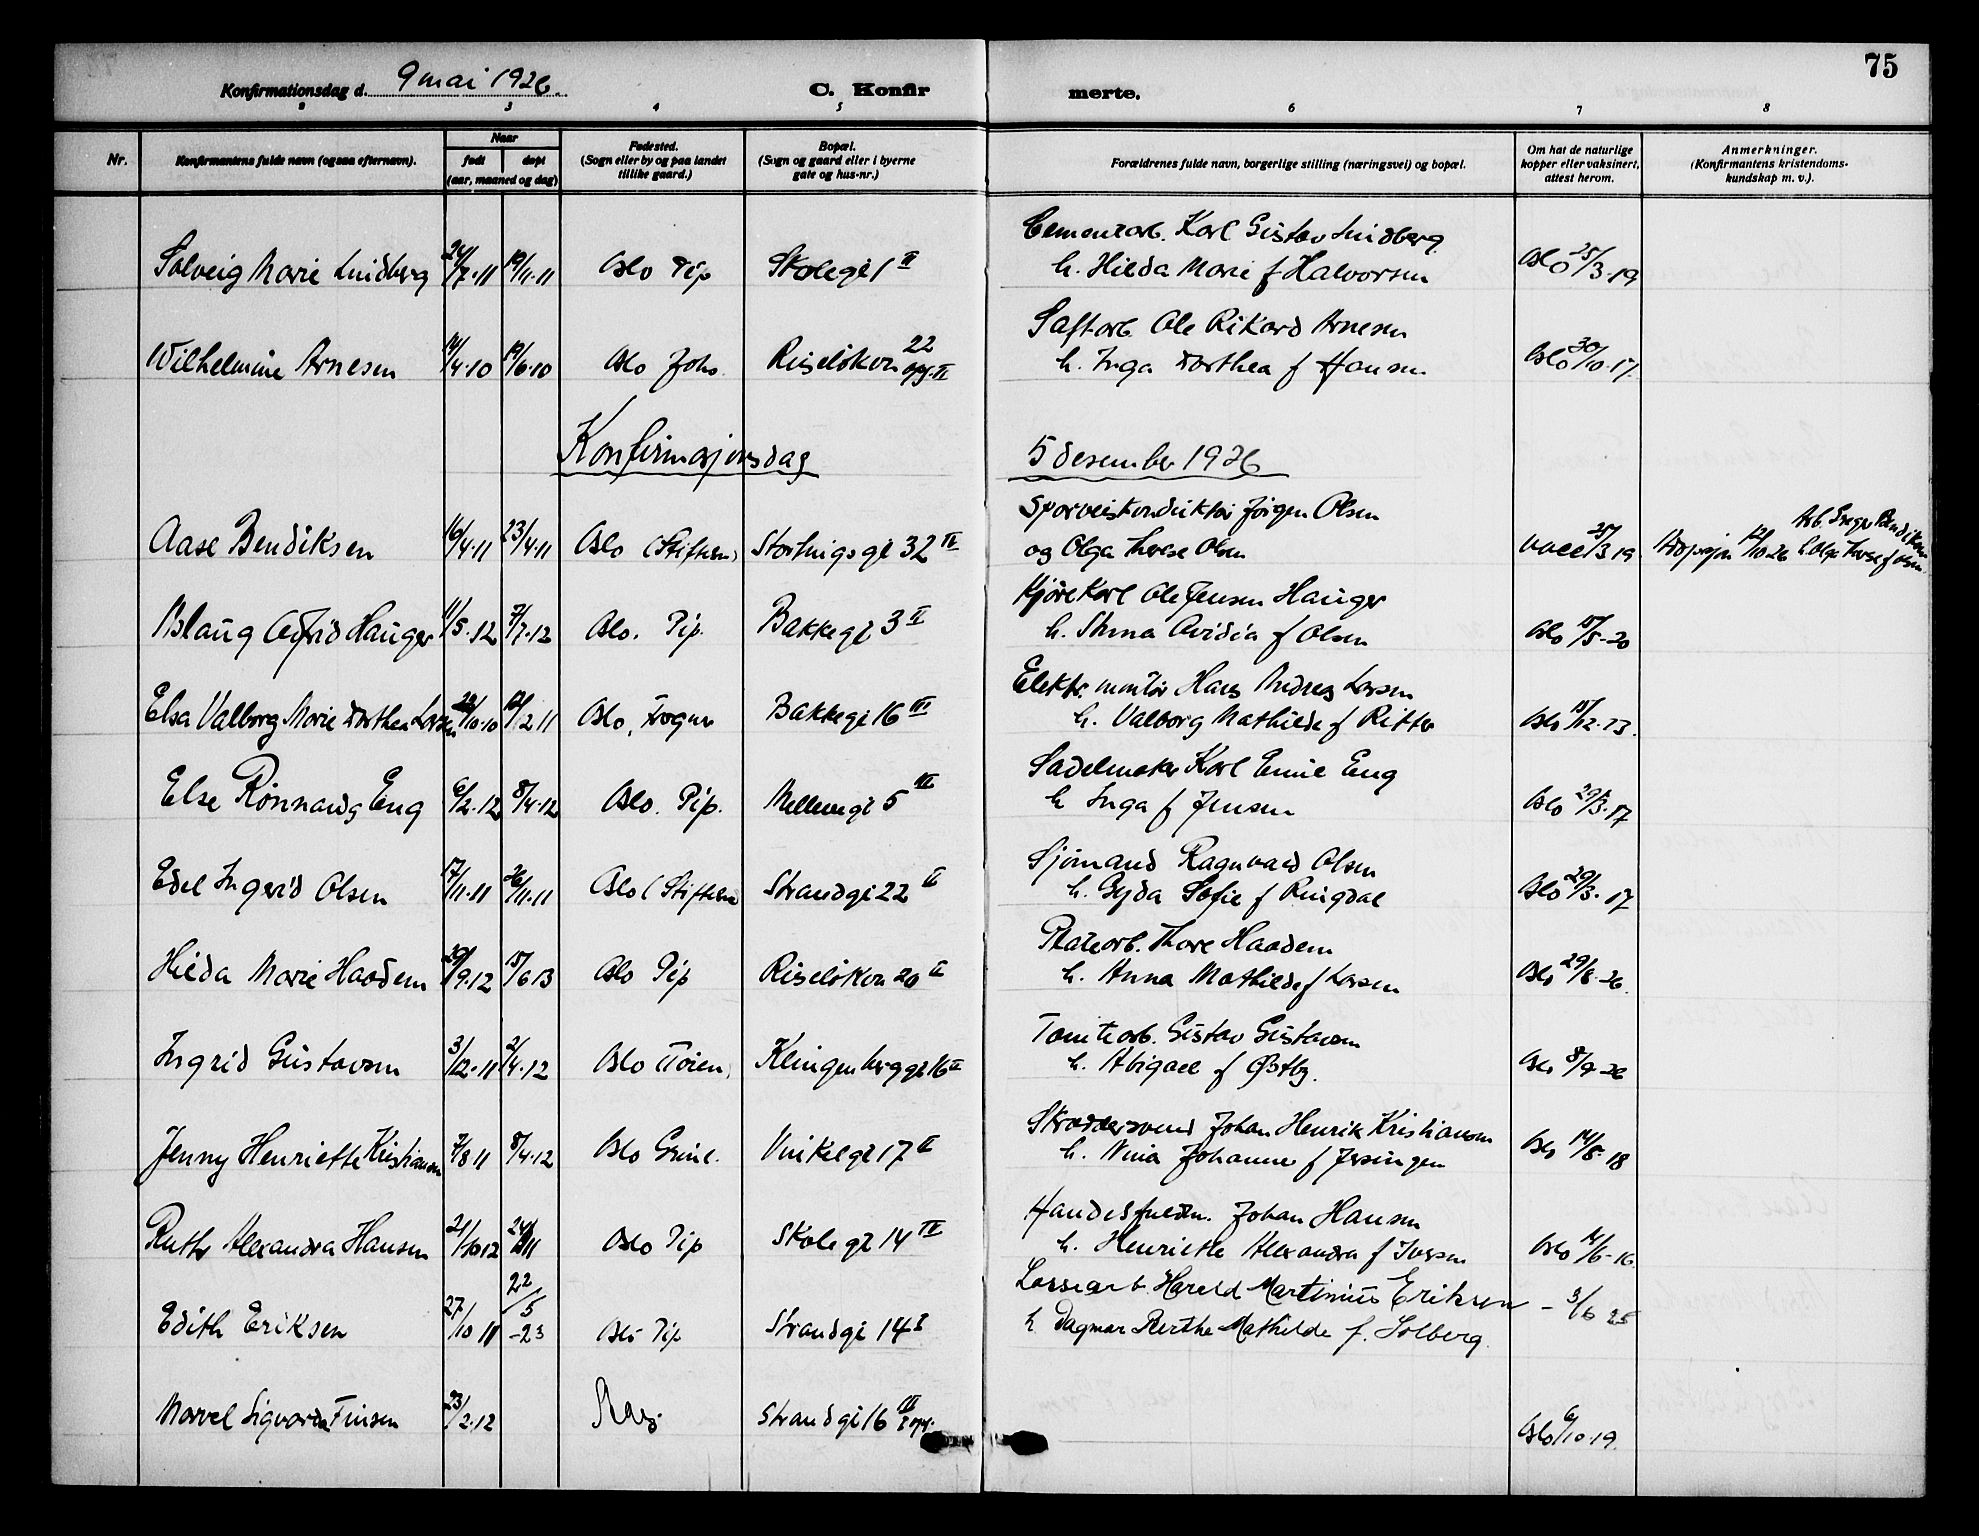 75
Konfirmationsdag d. 9 mai 1926.
C. Konfir merte.
2 3 4 5 6 7 8
Nr.
Konfirmantens fulde navn (ogsaa efternavn).
Naar
født døpt
(aar, maaned og dag)
Fødested.
(Sogn eller by og paa landet
tillike gaard.)
Bopæl.
(Sogn og gaard eller i byerne
gate og hus-nr.)
Forældrenes fulde navn, borgerlige stilling (næringsvei) og bopæl.
Om hat de naturlige
kopper eller vaksinert,
attest herom.
Anmerkninger.
(Konfirmantens kristendoms-
kundskap m. v.).
Cementarb. Karl Gustav Lindberg
Solveig Marie Lindberg 24/7.11 19/11.11 Oslo Pip Skolegt 1 II h. Hilda Marie f Halvorsen Oslo 25/3.19
Saftarb Ole Rikard Arnesen
Wilhelmine Arnesen 14/4.10 19/6.10 Oslo Joh. Ruseløkvn 22 opg. II h. Inga Dorthea f Hansen Oslo 30/10.17
Konfirmasjonsdag 5 desember 1926
Sporveiskonduktør Jørgen Olsen
Aase Bendiksen 16/4.11 23/4.11 Oslo (Stiftsen) Stortingsgt 32 IV og Olga Therese Olsen 25/3.19 Adopsjon 12/10.26
Kjørekarl Ole Jensen Hauger
Aslaug Hauger 11/5.12 7/7.12 Oslo. Pip. Bakkegt 3 II h. f Olsen Oslo 15/5-20
Elektr. montør Hans Andreas Larsen
Elsa Valborg Marie Dorthea Larsen 28/10.10 12/2 11 Oslo, Frogner Bakkegt 16 III h. Valborg Mathilde f Ritter Oslo 15/12.23.
Sadelmaker Karl Emil Eng
Else Rønnaug Eng 6/2.12 8/4.12 Oslo. Pip. Mellemgt 5 III h Inga f Jensen Oslo 29/3.17
Sjømand Ragnvald Olsen
Edel Ingerid Olsen 17/11.11 26/11.11 Oslo (Stiftsen) Strandgt 22 II h. Gyda Sofie f Ringdal Oslo 29/3.17
Thore Haadem
Hilda Marie Haadem 29/9.12 15/6 13 Oslo Pip Ruseløkvn 20 II h. Anna Mathilde f Larsen Oslo 29/8-26.
Tomtearb. Gustav Gustavsen
Ingrid Gustavsen 3/12.11 2/4.12 Oslo (Tøien) Klingenberggt 16 II h. Abigael f Østby. Oslo 8/9-26
Skræddersvend Johan Henrik Kristiansen
Jenny Henriette Kristiansen 7/8 11 8/4.12 Oslo Grünl. Vinkelgt 17 II h. Nina Johanne f Jessingen Oslo 14/8-18
Handelsfuldm. Johan Hansen
Ruth Alexandra Hansen 21/10 12 Oslo Pip Skolegt 14 IV h. Henriette Alexandra f Iversen Oslo 14/6-16.
Lossearb Harald Martinius Eriksen
Edith Eriksen 27/10 11 22/5-23 Oslo Pip Strandgt 14 I h Dagmar Berthe Mathilde f. Solberg. - 3/6 25
Marvel Sigvarda Finsen 23/2.12 Aas Strandgt 16 III opg. Oslo 6/10.19.